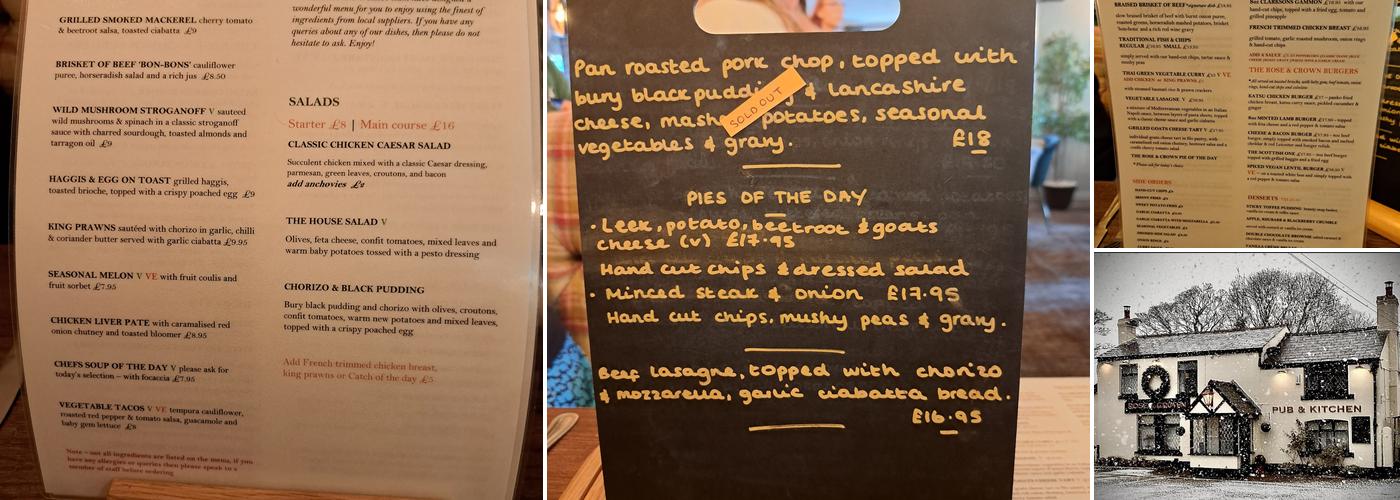 wonderful menu for you to enjoy using the finest of
ingredients from local suppliers. If you have any
queries about any of our dishes, then please do not
hesitate to ask. Enjoy!
GRILLED SMOKED MACKEREL cherry tomato
& beetroot salsa, toasted ciabatta £9
BRISKET OF BEEF 'BON-BONS' cauliflower
puree, horseradish salad and a rich jus £8.50
WILD MUSHROOM STROGANOFF V sauteed
wild mushrooms & spinach in a classic stroganoff
sauce with charred sourdough, toasted almonds and
tarragon oil £9
HAGGIS & EGG ON TOAST grilled haggis,
toasted brioche, topped with a crispy poached egg £9
KING PRAWNS sautéed with chorizo in garlic, chilli
& coriander butter served with garlic ciabatta £9.95
SEASONAL MELON V VE with fruit coulis and
fruit sorbet £7.95
CHICKEN LIVER PATE with caramalised red
onion chutney and toasted bloomer £8.95
CHEFS SOUP OF THE DAY V please ask for
today's selection – with focaccia £7.95
VEGETABLE TACOS V VE tempura cauliflower,
roasted red pepper & tomato salsa, guacamole and
baby gem lettuce £8
Note – not all ingredients are listed on the menu, if you
have any allergies or queries then please speak to a
member of staff before ordering
SALADS
Starter £8 | Main course £16
CLASSIC CHICKEN CAESAR SALAD
Succulent chicken mixed with a classic Caesar dressing,
parmesan, green leaves, croutons, and bacon
add anchovies £2
THE HOUSE SALAD V
Olives, feta cheese, confit tomatoes, mixed leaves and
warm baby potatoes tossed with a pesto dressing
CHORIZO & BLACK PUDDING
Bury black pudding and chorizo with olives, croutons,
confit tomatoes, warm new potatoes and mixed leaves,
topped with a crispy poached egg
Add French trimmed chicken breast,
king prawns or Catch of the day £5
Pan roasted pork chop, topped with
bury black pudding & lancashire
cheese, mash potatoes, seasonal
vegetables & gravy. £18
SOLD OUT
PIES OF THE DAY
• Leek, potato, beetroot & goats
cheese (v) £17.95
Hand cut chips & dressed salad
• Minced steak & onion £17.95
Hand cut chips, mushy peas & gravy.
Beef lasagne, topped with chorizo
& mozzarella, garlic ciabatta bread.
£16.95
BRAISED BRISKET OF BEEF
slow braised brisket of beef with burnt onion puree,
roasted greens, horseradish mashed potatoes, brisket
'bon-bons' and a rich red wine gravy
TRADITIONAL FISH & CHIPS
REGULAR SMALL
simply served with our hand-cut chips, tartar sauce &
mushy peas
THAI GREEN VEGETABLE CURRY
with steamed basmati rice & prawn crackers
VEGETABLE LASAGNE V
GRILLED GOATS CHEESE TART V
THE ROSE & CROWN PIE OF THE DAY
SIDE ORDERS
8oz CLARKSONS GAMMON
hand-cut chips, topped with a fried egg, tomato and
grilled pineapple
FRENCH TRIMMED CHICKEN BREAST
grilled tomato, garlic roasted mushroom, onion rings
& hand-cut chips
THE ROSE & CROWN BURGERS
KATSU CHICKEN BURGER
8oz MINTED LAMB BURGER
CHEESE & BACON BURGER
THE SCOTTISH ONE
SPICED VEGAN LENTIL BURGER
DESSERTS
STICKY TOFFEE PUDDING
APPLE, RHUBARB & BLACKBERRY CRUMBLE
DOUBLE CHOCOLATE BROWNIE
ROSE & CROWN
PUB & KITCHEN